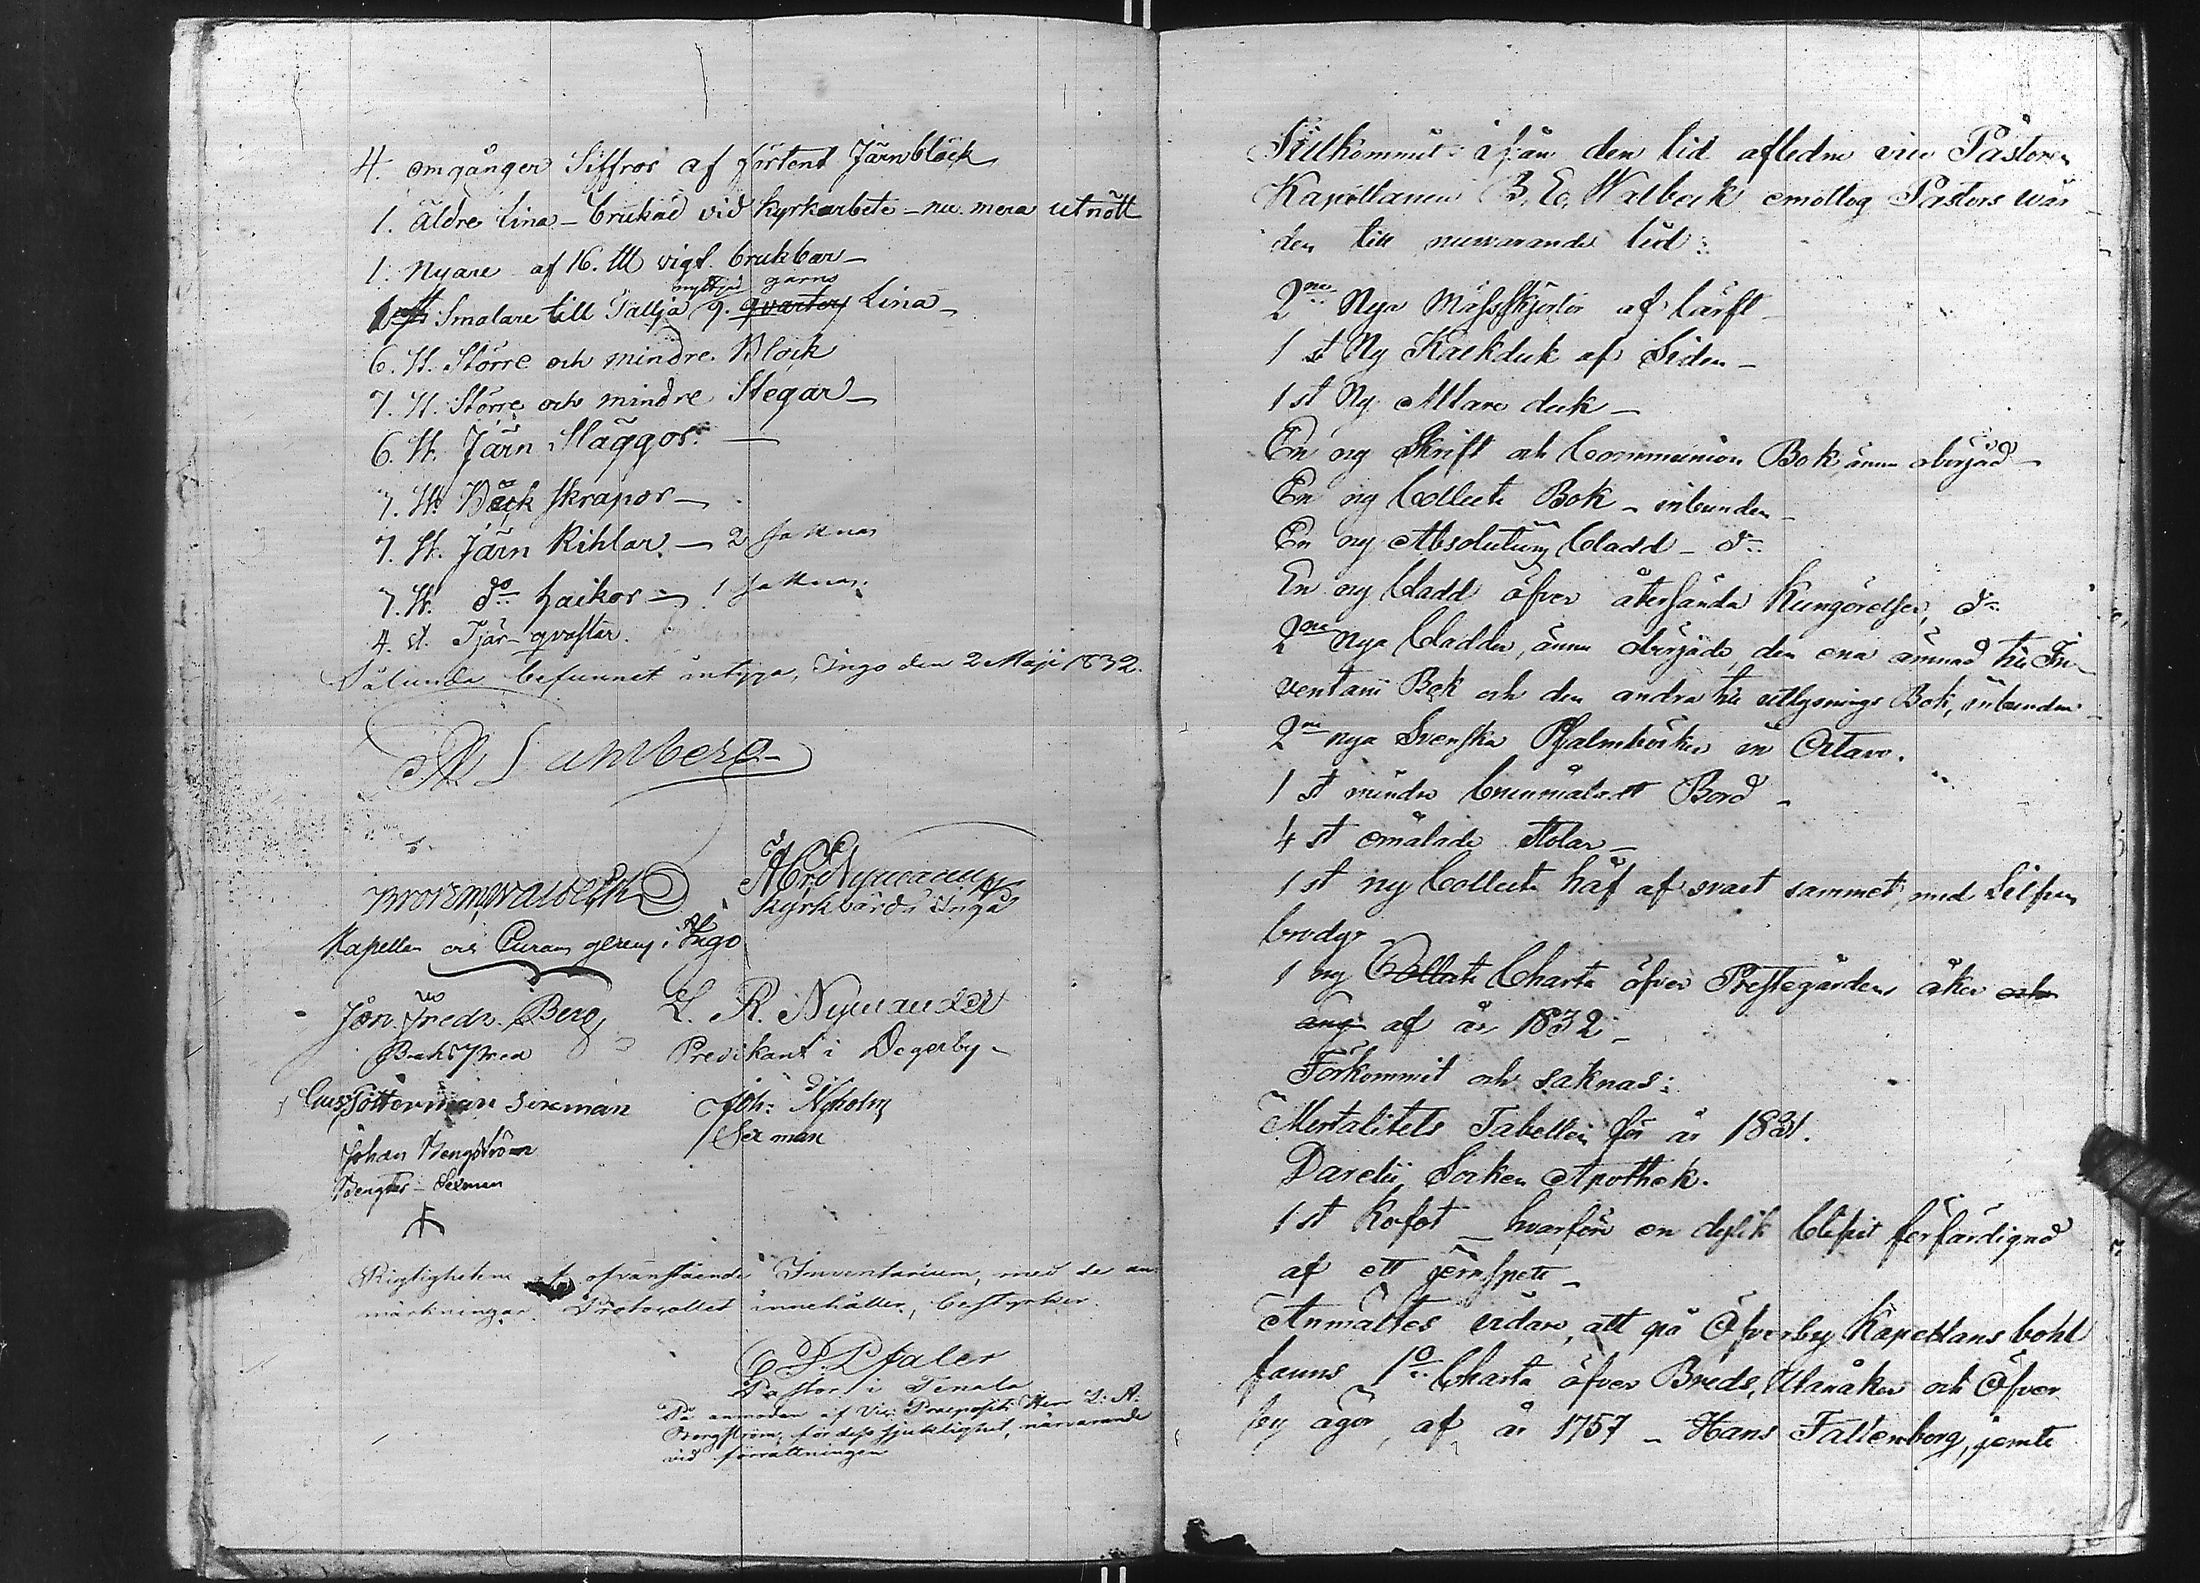 4. omgånger Siffror af förtent Järnbläck
1. äldre Lina – brukad vid kyrkarbete – nu mera utnött
1. Nyare af 16. ℔ vigt. brukbar –
garns
1 st. Smalare till Tallja 9. qvarters Lina –
6. st. Större och mindre Block
7. st. Större och mindre Stegar –
6. st. Järn Släggor. –
7. st. Bäck skrapor –
7. st. Järn Kihlar. – 2 saknas
7. st. do haikor – 1 saknas.
4 st. Tjär qvastar.
Sålunda befunnet intyga, Ingo den 2 Maji 1832.
Sahlberg
Kyrkvärd i Ingå
Kapellan och Curam gerens i Ingo
Jon. Fredr. Berg
L. R. Nymander
Predikant i Degerby –
Gust Söderman sexman
Joh: Nyholm
Sexman
Johan Bengström
Bengts – Sexman
Rigtigheten af ofvanstående Inventarium, med de an-
märkningar Protocollet innehåller, bestyrker.
Pastor i Tenala
På anmodan af Vice Praepositi Herr
Bergström, för dess sjuklighet, närvarande
vid förrättningen
Tillkommit ifrån den tid afledne vice Pastoren
Kapellanen B. E. Walbeck emottog Pastors wår-
den till nuvarande tid:
2ne Nya Mässskjortor af lärft –
1 st Ny Kalkduk af Siden –
1 st Ny Altare duk –
En ny Skrift och Communion Bok, ännu obegjad –
En ny Collecte Bok – inbunden –
En ny Absolutions Cladd – do
En ny Cladd öfver återsända Kungörelser, do
2ne Nya Cladder, ännu obörjade, den ena ämnad till In-
ventarii Bok och den andra till utlysnings Bok, inbunden –
2ne nya Svenska Psalmböcker in Octavo.
1 st mindre brunmåladt Bord –
4 st omålade stolar –
1 st ny Collecte håf af svart sammet, med Silfver
brodyr
1 ny Collecte Charta öfver Prestegårdens åker och
äng af år 1832 –
Förkommit och saknas:
Mortalitets Tabellen för år 1831.
Darelii Socken Apothek.
1 st Kofot – hvarföre en dylik blifvit förfärdigad
af ett jernspett –
Anmältes vidare, att på Öfverby Kapellans bohl
fanns 1o Charta öfver Breds, Utanåker och Öfver
by ägor, af år 1757 – Hans Fattenborg, jemte